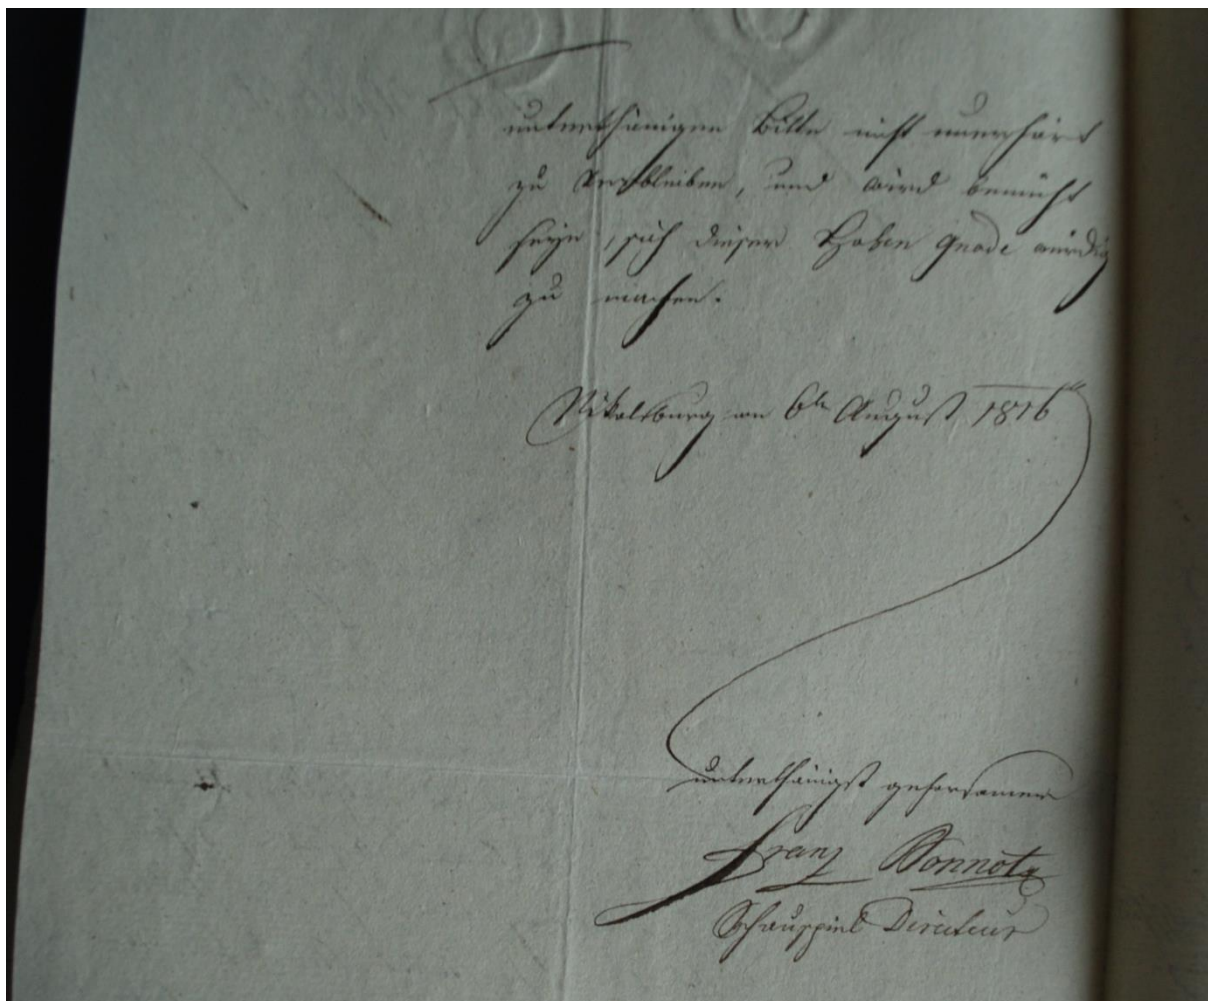 unterthänigen Bitte nicht unerhört
zu verbleiben, und wird bemüht
seyn, sich dieser Hohen Gnade würdig
zu machen.
Nikolsburg am 6tn August 1816
unterthänigst gehorsamer
Franz
Schauspiel Directeur